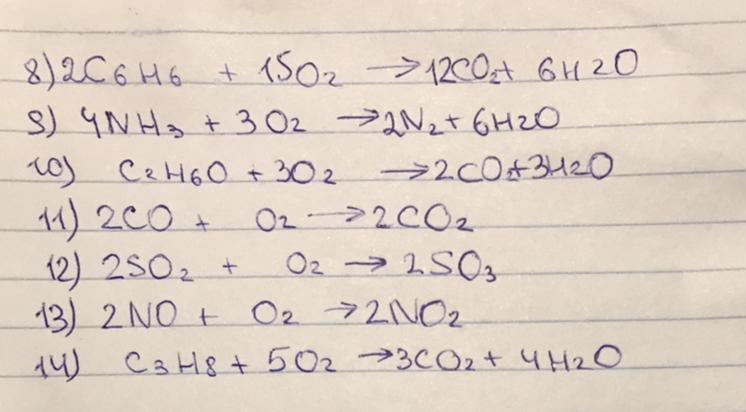 8) 2C6H6 + 15O2 → 12CO2 + 6H2O
9) 4NH3 + 3O2 → 2N2 + 6H2O
10) C2H6O + 3O2 → 2CO2 + 3H2O
11) 2CO + O2 → 2CO2
12) 2SO2 + O2 → 2SO3
13) 2NO + O2 → 2NO2
14) C3H8 + 5O2 → 3CO2 + 4H2O